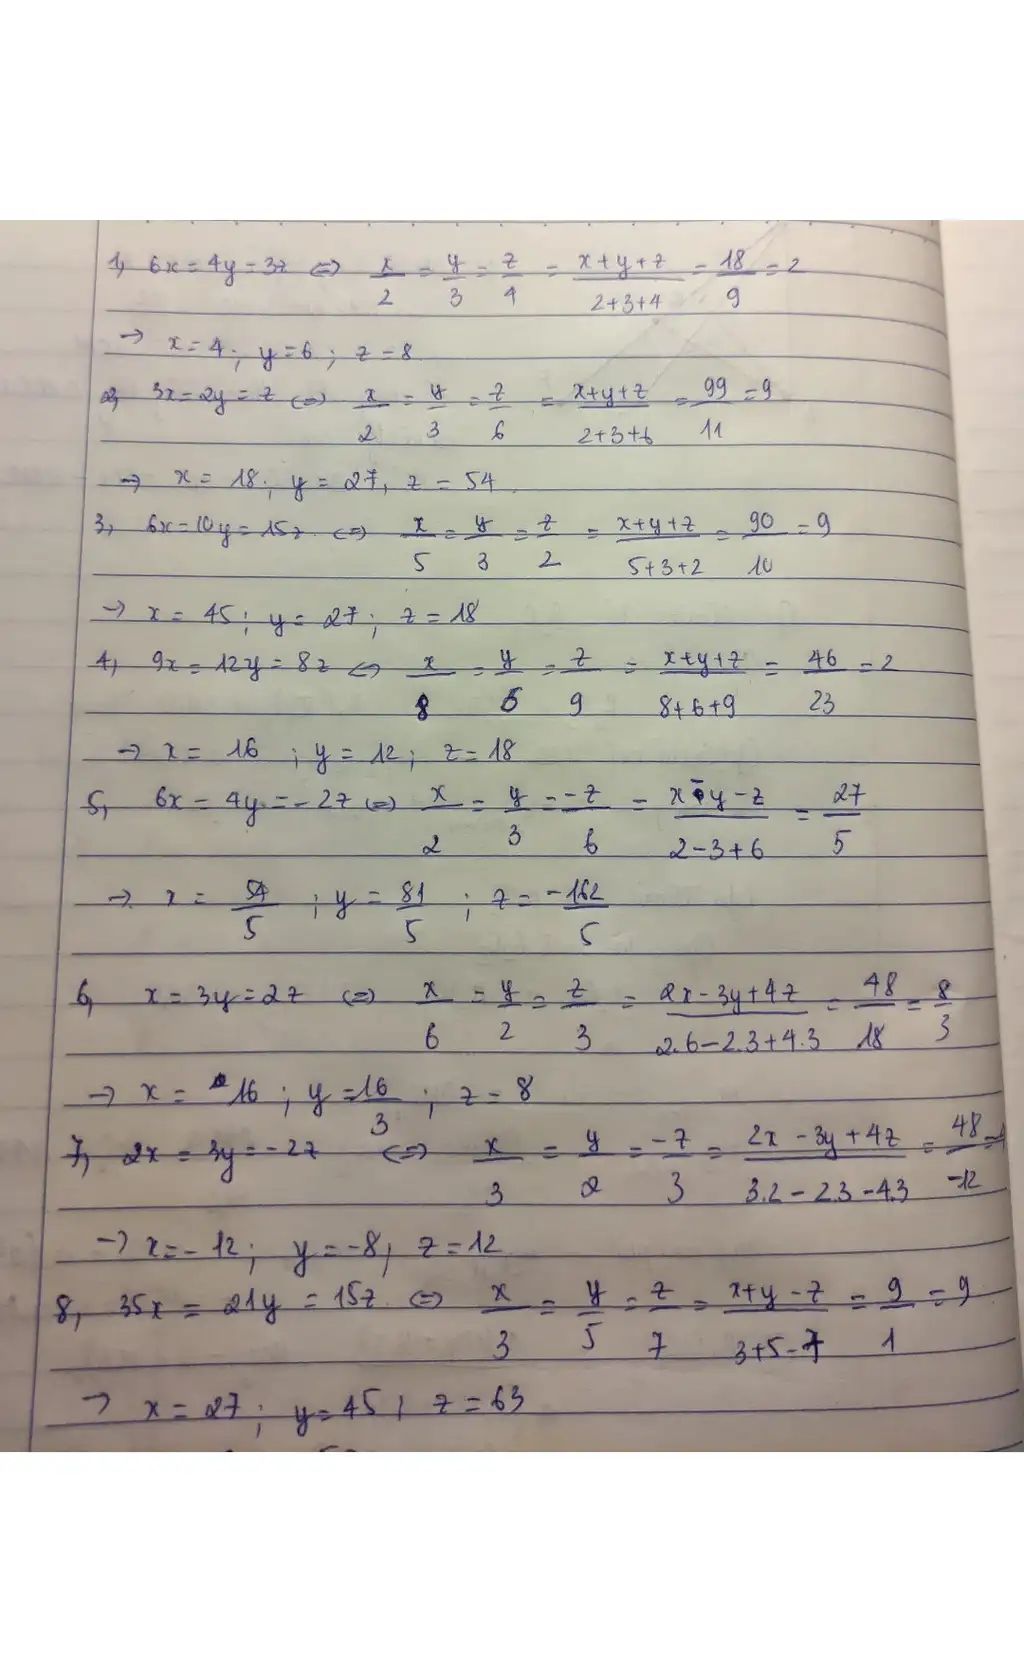 1, 6x = 4y = 3z <=> x/2 = y/3 = z/4 = (x+y+z)/(2+3+4) = 18/9 = 2
-> x = 4 ; y = 6 ; z = 8
2, 3x = 2y = z <=> x/2 = y/3 = z/6 = (x+y+z)/(2+3+6) = 99/11 = 9
-> x = 18 ; y = 27, z = 54
3, 6x = 10y = 15z <=> x/5 = y/3 = z/2 = (x+y+z)/(5+3+2) = 90/10 = 9
-> x = 45 ; y = 27 ; z = 18
4, 9x = 12y = 8z <=> x/8 = y/6 = z/9 = (x+y+z)/(8+6+9) = 46/23 = 2
-> x = 16 ; y = 12 ; z = 18
5, 6x = 4y = -2z <=> x/2 = y/3 = -z/6 = (x-y-z)/(2-3+6) = 27/5
-> x = 54/5 ; y = 81/5 ; z = -162/5
6, x = 3y = 2z <=> x/6 = y/2 = z/3 = (2x-3y+4z)/(2.6-2.3+4.3) = 48/18 = 8/3
-> x = 16 ; y = 16/3 ; z = 8
7, 2x = 3y = -2z <=> x/3 = y/2 = -z/3 = (2x-3y+4z)/(3.2-2.3-4.3) = 48/-12 =
-> x = -12 ; y = -8 ; z = 12
8, 35x = 21y = 15z <=> x/3 = y/5 = z/7 = (x+y-z)/(3+5-7) = 9/1 = 9
-> x = 27 ; y = 45 ; z = 63